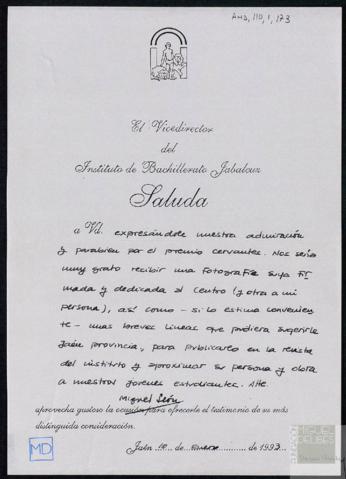 AMD, 110, 1, 173
El Vicedirector
del
Instituto de Bachillerato Jabalcuz
Saluda
a Vd. expresándole nuestra admiración
y parabien por el premio cervantes. Nos sería
muy grato recibir una fotografía suya fir
mada y dedicada al Centro (y otra a mi
persona), así como - si lo estima convenien
te - unas breves líneas que pudiera sugerirle
Jaén provincia, para publicarlo en la revista
del instituto y aproximar su persona y obra
a nuestros jóvenes estudiantes. Atte.
Miguel León
aprovecha gustoso la ocasión para ofrecerle el testimonio de su más
distinguida consideración.
Jaén de enero de 1993
MD
MIGUEL
DELIBES